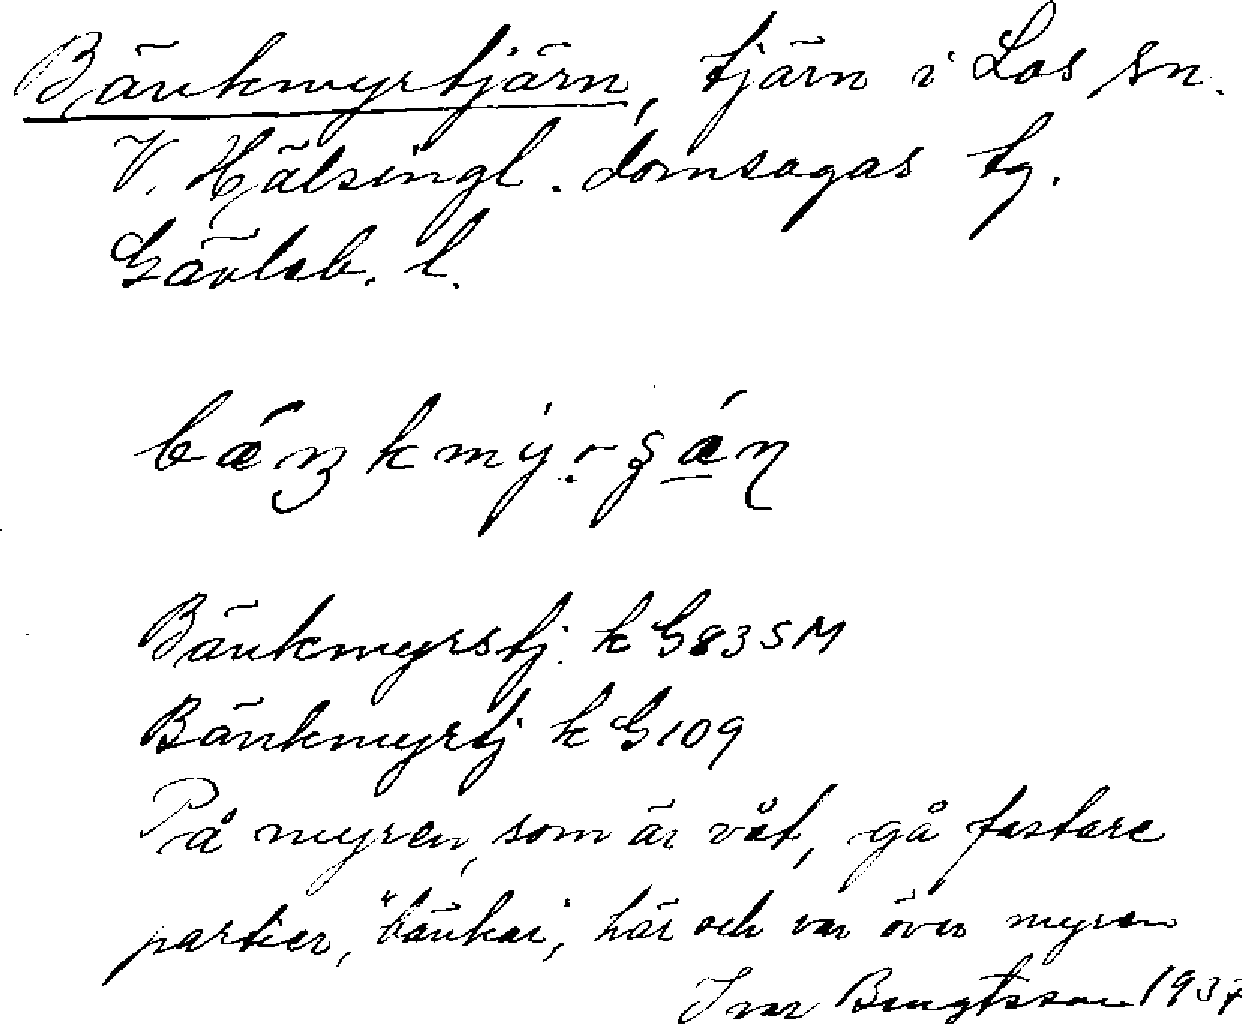 Bänkmyrtjärn, tjärn i Los sn.
V. Hälsingl. domsagas tg.
Gävleb. l.
Bänkmyrstj. k G83SM
Bänkmyrtj k G109
På myren, som är våt, gå fastare
partier, "bänkar", här och var över myren
Ivar Bengtsson 1937